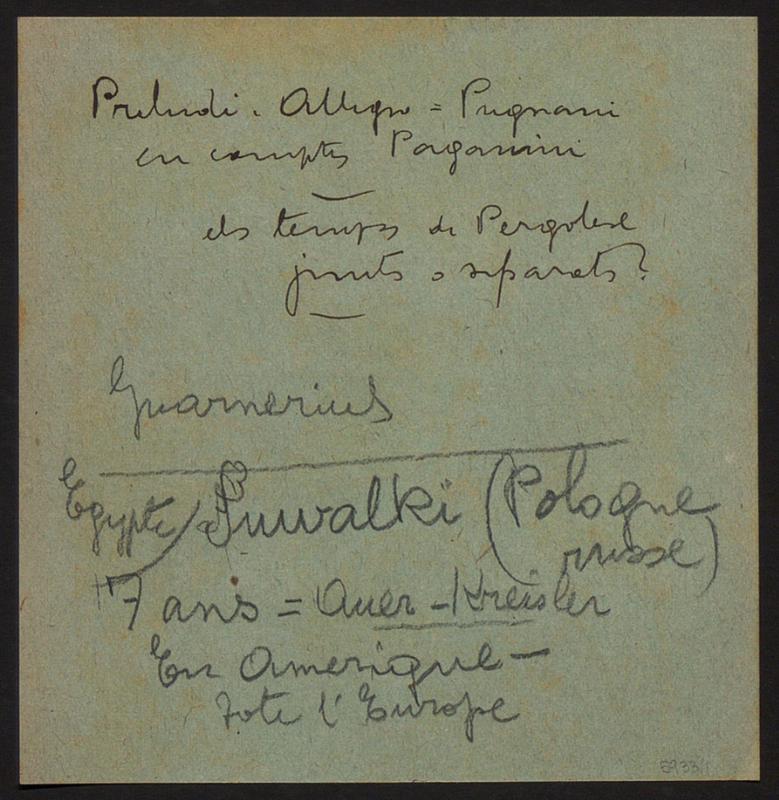 Preludi. Allegro = Pugnani
en comptes Paganini
els temps de Pergolese
junts o separats?
Guarnerius
Egypte Suwalki (Pologne
russe)
7 ans = Auer - Kreisler
En Amerique -
tote l'Europe
5933/1